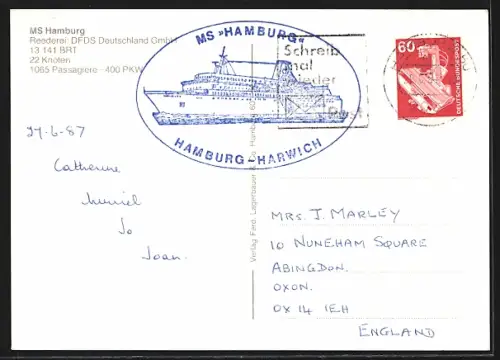 MS Hamburg
Reederei DFDS Deutschland GmbH
13 141 BRT
22 Knoten
1065 Passagiere – 400 PKW
MS »HAMBURG«
HAMBURG – HARWICH
Schreib
mal
wieder
Post
60
DEUTSCHE BUNDESPOST
27-6-87
Catherine
Muriel
Jo
Joan.
Verlag Ferd. Lagerbauer & Co. Hamburg
MRS. J. MARLEY
10 NUNEHAM SQUARE
ABINGDON.
OXON.
OX14 1EH
ENGLAND